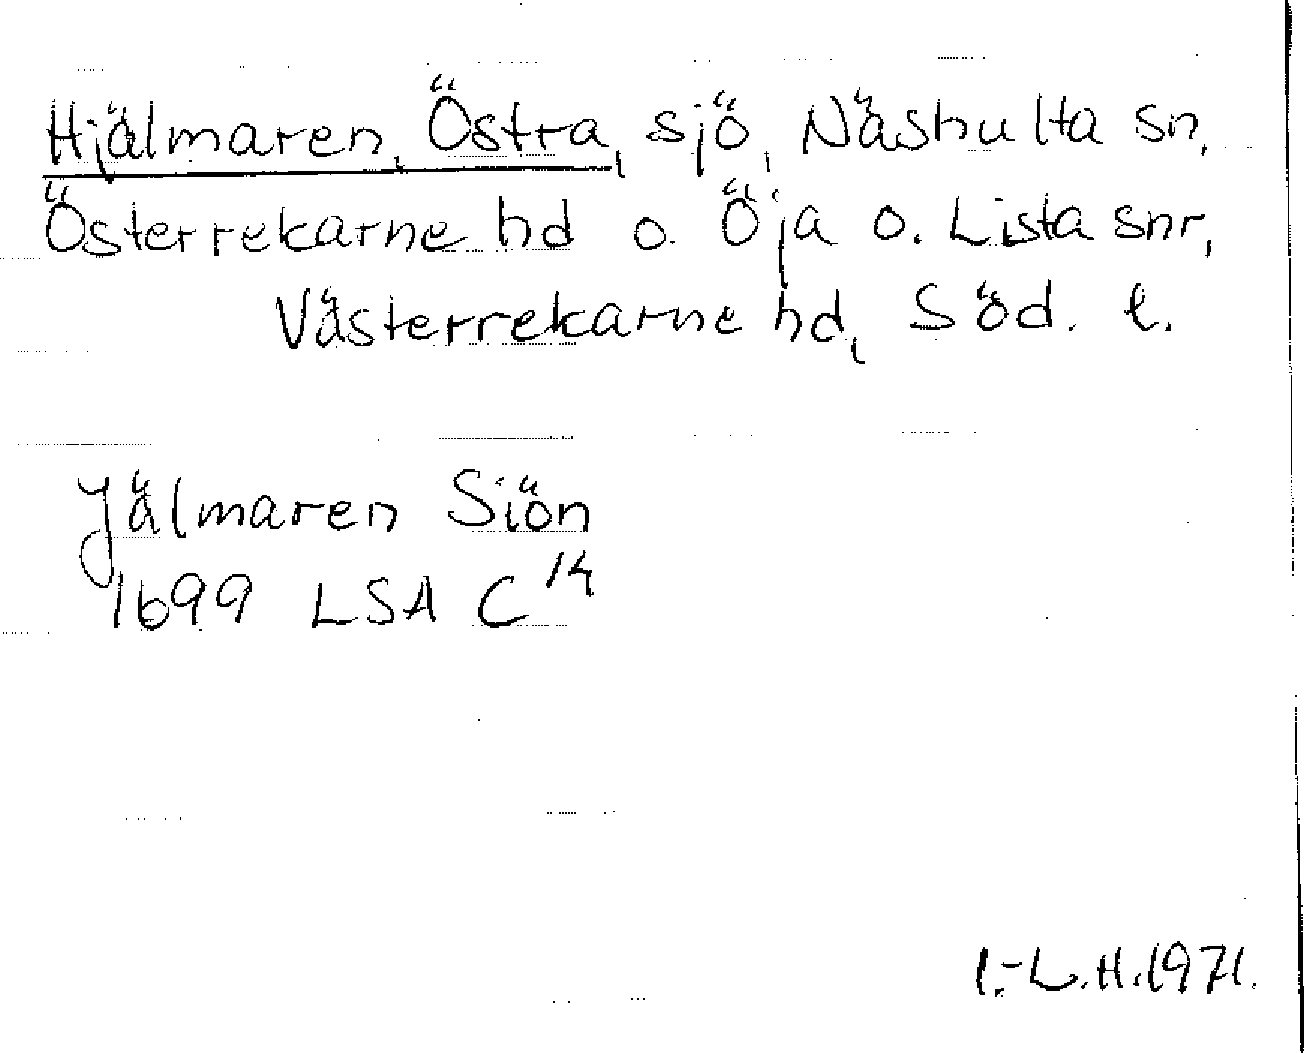 Hjälmaren, Östra, sjö, Näshulta sn,
Österrekarne hd o. Öja o. Lista snr,
Västerrekarne hd, Söd. l.
Jälmaren Siön
1699 LSA C 14
I.-L.H.1971.